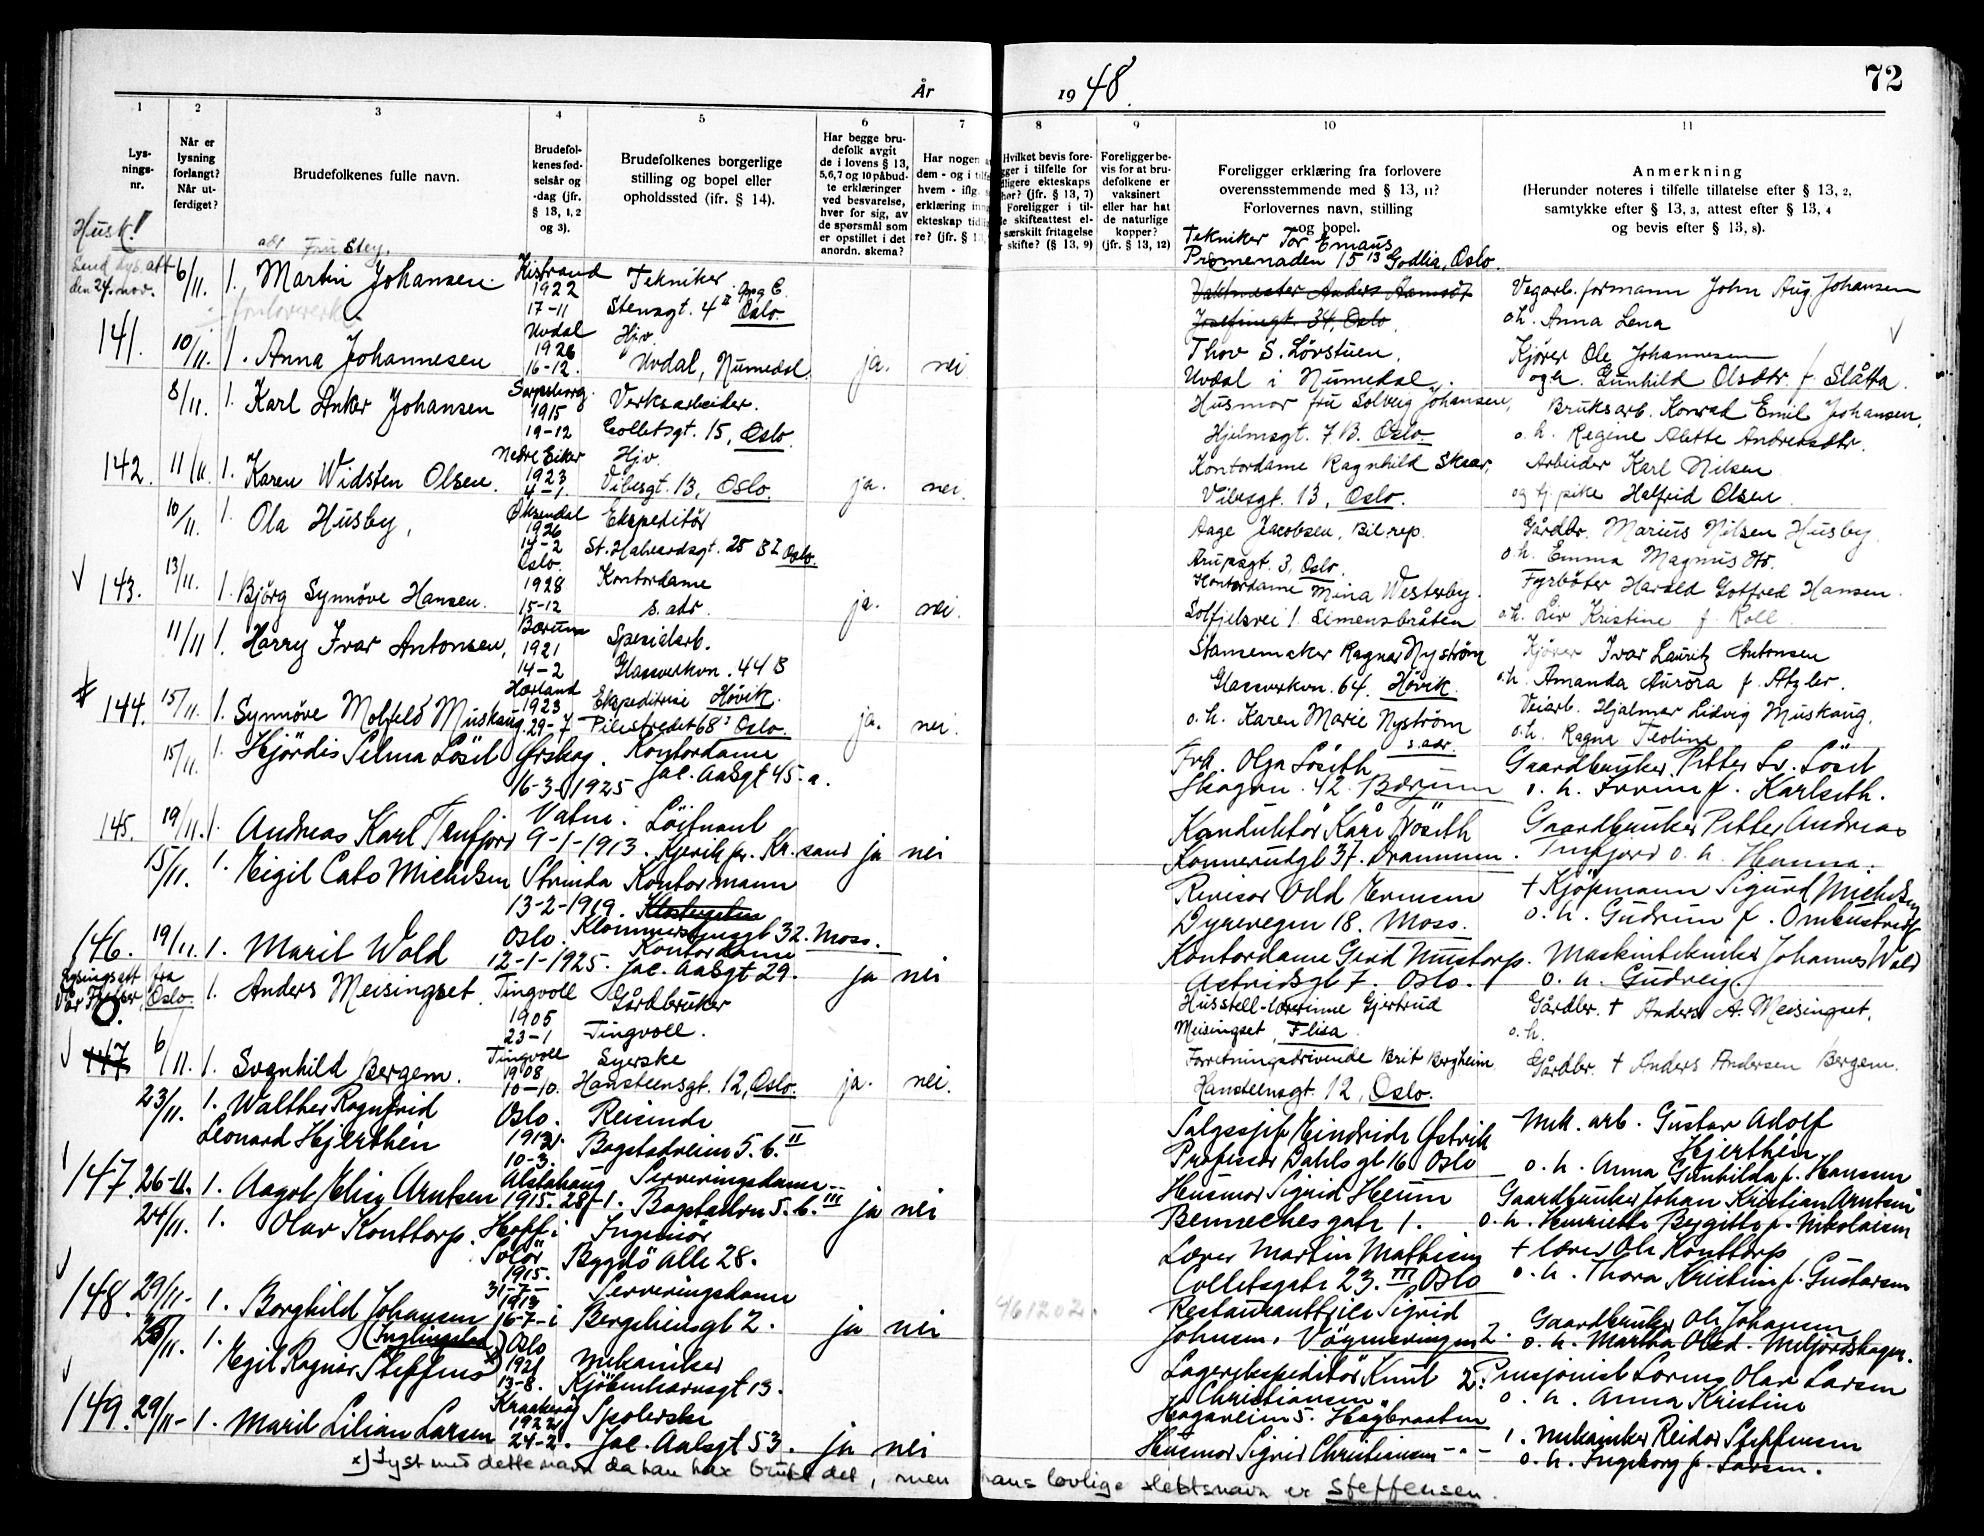 År 1948.
72
1 2 3 4 5 6 7 8 9 10 11
Lys-
nings-
nr.
Når er
lysning
forlangt?
Når ut-
ferdiget?
Brudefolkenes fulle navn.
Brudefol-
kenes fød-
selsår og
-dag (jfr.
§ 13, 1, 2
og 3).
Brudefolkenes borgerlige
stilling og bopel eller
opholdssted (jfr. § 14).
Har begge bru-
defolk avgit
de i lovens § 13,
5,6,7 og 10 påbud-
te erklæringer
ved besvarelse,
hver for sig, av
de spørsmål som
er opstillet i det
anordn. skema?
Har nogen
dem - og i
hvem - iflg.
erklæring
ekteskap
re? (jfr. §
Hvilket bevis fore-
ger i tilfelle for
ligere ekteskaps
hør? (jfr. § 13, 7)
Foreligger i til-
skifteattest el-
særskilt fritagelse
skifte? (§ 13, 9)
Foreligger be-
vis for at bru-
defolkene er
vaksinert
eller har hat
de naturlige
kopper?
(jfr. § 13, 12)
Foreligger erklæring fra forlovere
overensstemmende med § 13, 11?
Forlovernes navn, stilling
og bopel.
Anmerkning
(Herunder noteres i tilfelle tillatelse efter § 13, 2,
samtykke efter § 13, 3, attest efter § 13, 4
og bevis efter § 13, 8).
Husk!
Send lys.att
den 24. nov.
6/11. 1. Martin Johansen
Kistrand
1922
17-11
Tekniker
Stensgt. 4 II Opg E.
Oslo
Tekniker Tor Emaus
Promenaden 15 13 Godlia, Oslo.
Vaktmester Anders Aamodt
Josefinegt. 34, Oslo.
Vegarb.formann John Aug. Johansen
o.h. Anna Lena
141. 10/11. 1. Anna Johannesen
Uvdal
1926
16-12.
Hjv.
Uvdal, Numedal.
ja. nei
Thov S. Lövstuen.
Uvdal i Numedal.
Kjører Ole Johannesen
og h. Gunhild Olsdtr. f. Slåtta.
8/11. 1. Karl Anker Johansen
Sarpsborg.
1915
19-12
Verksarbeider.
Colletsgt. 15, Oslo.
Husmor fru Solveig Johansen,
Hjelmsgt. 7 B. Oslo
Bruksarb. Konrad Emil Johansen,
o. h. Regine Alette Andreasdtr.
142. 11/11. 1. Karen Widsten Olsen.
Nedre Eiker
1923
4-1.
Hjv.
Vibesgt. 13, Oslo.
ja. nei.
Kontordame Ragnhild Skaar,
Vibesgt. 13, Oslo.
Arbeider Karl Nilsen
og tj. pike Halfrid Olsen.
10/11. 1. Ola Husby,
Øksendal
1926
14-2
Ekspeditör
St. Halvardsgt. 25 B I Oslo.
Aage Jacobsen, Bilrep.
Arupsgt. 3, Oslo.
Gårdbr. Marius Nilsen Husby.
o.h. Emma Magnusdtr.
143. 13/11. 1. Björg Synnöve Hansen.
Oslo.
1928
15-12
Kontordame
s. adr.
ja. nei.
Kontordame Mina Westerby.
Solfjelsvei 1 Simensbråten
Fyrböter Harald Gotfred Hansen.
o.h. Liv Kristine f. Roll.
11/11 1. Harry Ivar Antonsen,
Bærum
1921
14-2
Spesialarb.
Glassverkvn. 44 B
Hövik.
Stansemaker Ragnar Nyström
Glassverkvn. 64. Hövik.
Kjører Ivar Lauritz Antonsen
o.h. Amanda Aurora f. Atzler.
144. 15/11. 1. Synnöve Molfeld Muskaug.
Hærland
1923
29-7
Ekspeditrise
Pilestredet 68 Oslo.
ja. nei.
o. h. Karen Marie Nyström
s. adr.
Veiarb. Hjalmar Lidvig Muskaug.
o.h. Ragna Teoline
15/11. 1. Hjördis Selma Löset
Ørskog.
16-3-1925
Kontordame
Jac. Aalsgt 45. a.
Frk. Olga Löseth
Skogvn. 42. Bærum
Gaardbruker Petter Löset
o. h. f. Karlseth.
145. 19/11. 1. Andreas Karl Tenfjord
Vatne.
9-1-1913.
Löitnant
Kjevik pr. Kr.sand
ja nei
Konduktör Kåre Löseth
Konnerudgt 37. Drammen.
Gaardbruker Petter Andreas
Tenfjord o. h. Hanna.
15/11. 1. Eigil Cato Michelsen
Strinda
13-2-1919.
Kontormann
32. Moss.
Revisor Odd
Dyrevegen 18. Moss.
† Kjöpmann Sigurd Michelsen
o. h. Gudrun f.
146. 19/11. 1. Marit Wold
Oslo.
12-1-1925.
Kontordame
Jac. Aalsgt 29.
ja nei
Kontordame Gerd Mustorp.
Astridsgt 7. Oslo.
Maskintekniker Johannes Wold
o. h. Gudveig.
Lysingsatt fra
Vår Frelser, Oslo.
1. Anders Meisingset.
Tingvoll
1905
23-1
Gårdbruker
Tingvoll.
Husstell-lærerinne Gjertrud
Meisingset, Flisa.
Gårdbr. † Anders A. Meisingset.
o.h.
147 6/11. 1. Svanhild Bergem.
Tingvoll
1908
10-10.
Syerske
Hansteensgt. 12, Oslo.
ja. nei.
Forretningsdrivende Brit Bergheim,
Hansteensgt. 12, Oslo.
Gårdbr. † Anders Andersen Bergem.
23/11. 1. Walther Ragnfrid
Leonard Hjerthén
Oslo.
10-3.
Reisende
Bogstadveien 5. b. II
Salgssjef Eindride Østvik
Professor Dahls gt 16. Oslo
Mek. arb. Gustav Adolf
Hjerthén
o. h. Anna Gunhilda f. Hansen
147. 26-11. 1. Aagot Elise Arntsen
Alstahaug
1915. 28-1.
Serveringsdame
Bogstadvn 5. b. III
ja nei
Husmor Sigrid Heum
Bennechesgate 1.
Gaardbruker Johan Kristian Arntsen
o. h. Henriette Bergitte f. Nikolaisen
24/11. 1. Olav Konttorp.
Hoff i
Solör
1915.
31-7-
Ingeniör
Bygdö alle 28.
Lærer Martin Mathisen
Colletsgate 23. III Oslo
† lærer Ole Konttorp
o. h. Thora Kristine f. Gustavsen
148. 29/11- 1. Borghild Johansen
1913
16-7-
Serveringsdame
Bergsliensgt 2.
ja nei
461202.
Sigrid
Johnsen. 2.
Gaardbruker Ole Johansen
o. h. Martha
1. Egil Ragnar Steffens x)
Oslo
1921
13-8.
mekaniker
Kjöbenhavnsgt 13.
Lagerekspeditör Knut
Christiansen
Hagaveien 5.
2. Pensjonist Lorens Olav Larsen
o. h. Anna Kristine
149. 29/11- 1. Marit Lilian Larsen
Kraakerøy
1922
24-2.
Jac. Aalsgt 53.
ja nei
Husmor Sigrid Christiansen - " -
1. mekaniker Reidar Steffensen
o. h. Ingeborg f. Larsen.
x) Lyst med dette navn da han har brukt det, men hans lovlige slektsnavn er Steffensen.